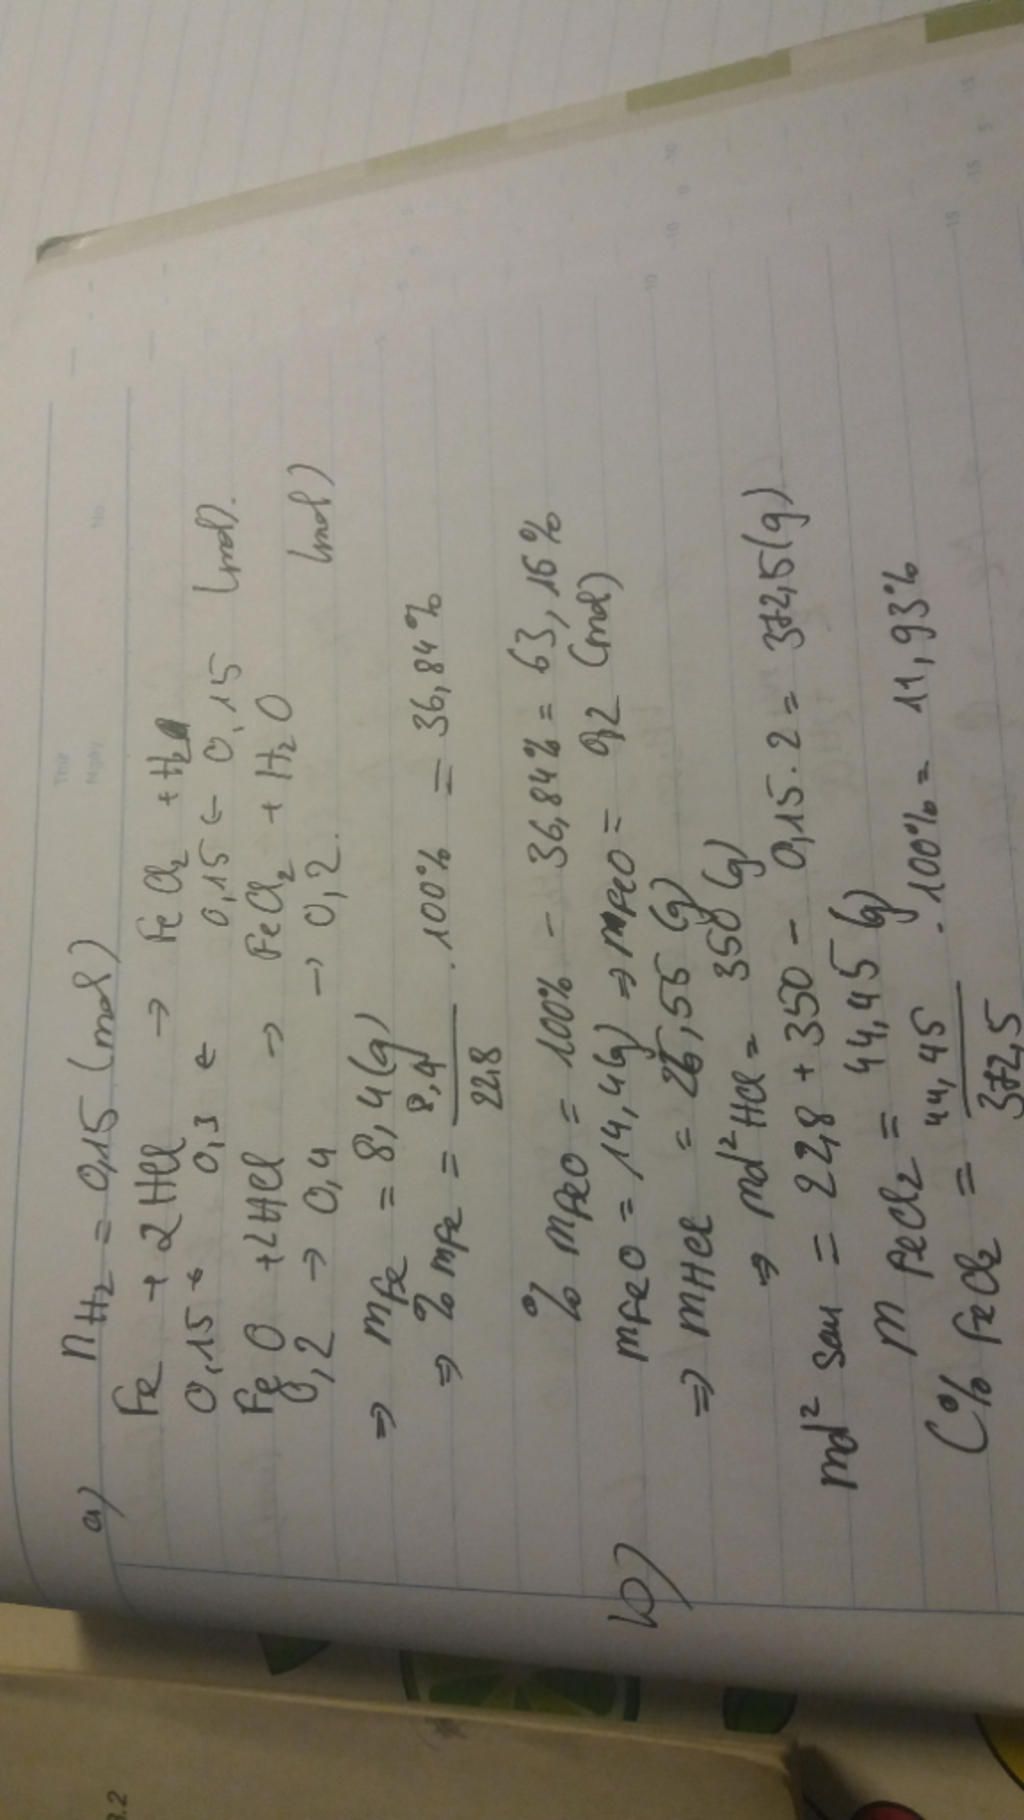 a) nH2 = 0,15 (mol)
Fe + 2HCl → FeCl2 + H2
0,15 ← 0,3 ← 0,15 ← 0,15 (mol).
FeO + 2HCl → FeCl2 + H2O
0,2 → 0,4 → 0,2. (mol)
⇒ mFe = 8,4 (g)
⇒ % mFe = 8,4/22,8 . 100% = 36,84%
% mFeO = 100% - 36,84% = 63,16%
b) mFeO = 14,4(g) ⇒ mFeO = 0,2 (mol)
⇒ mHCl = 25,55 (g)
⇒ md² HCl = 350 (g)
md² sau = 22,8 + 350 - 0,15.2 = 372,5(g)
m FeCl2 = 44,45 (g)
C% FeCl2 = 44,45/372,5 . 100% = 11,93%